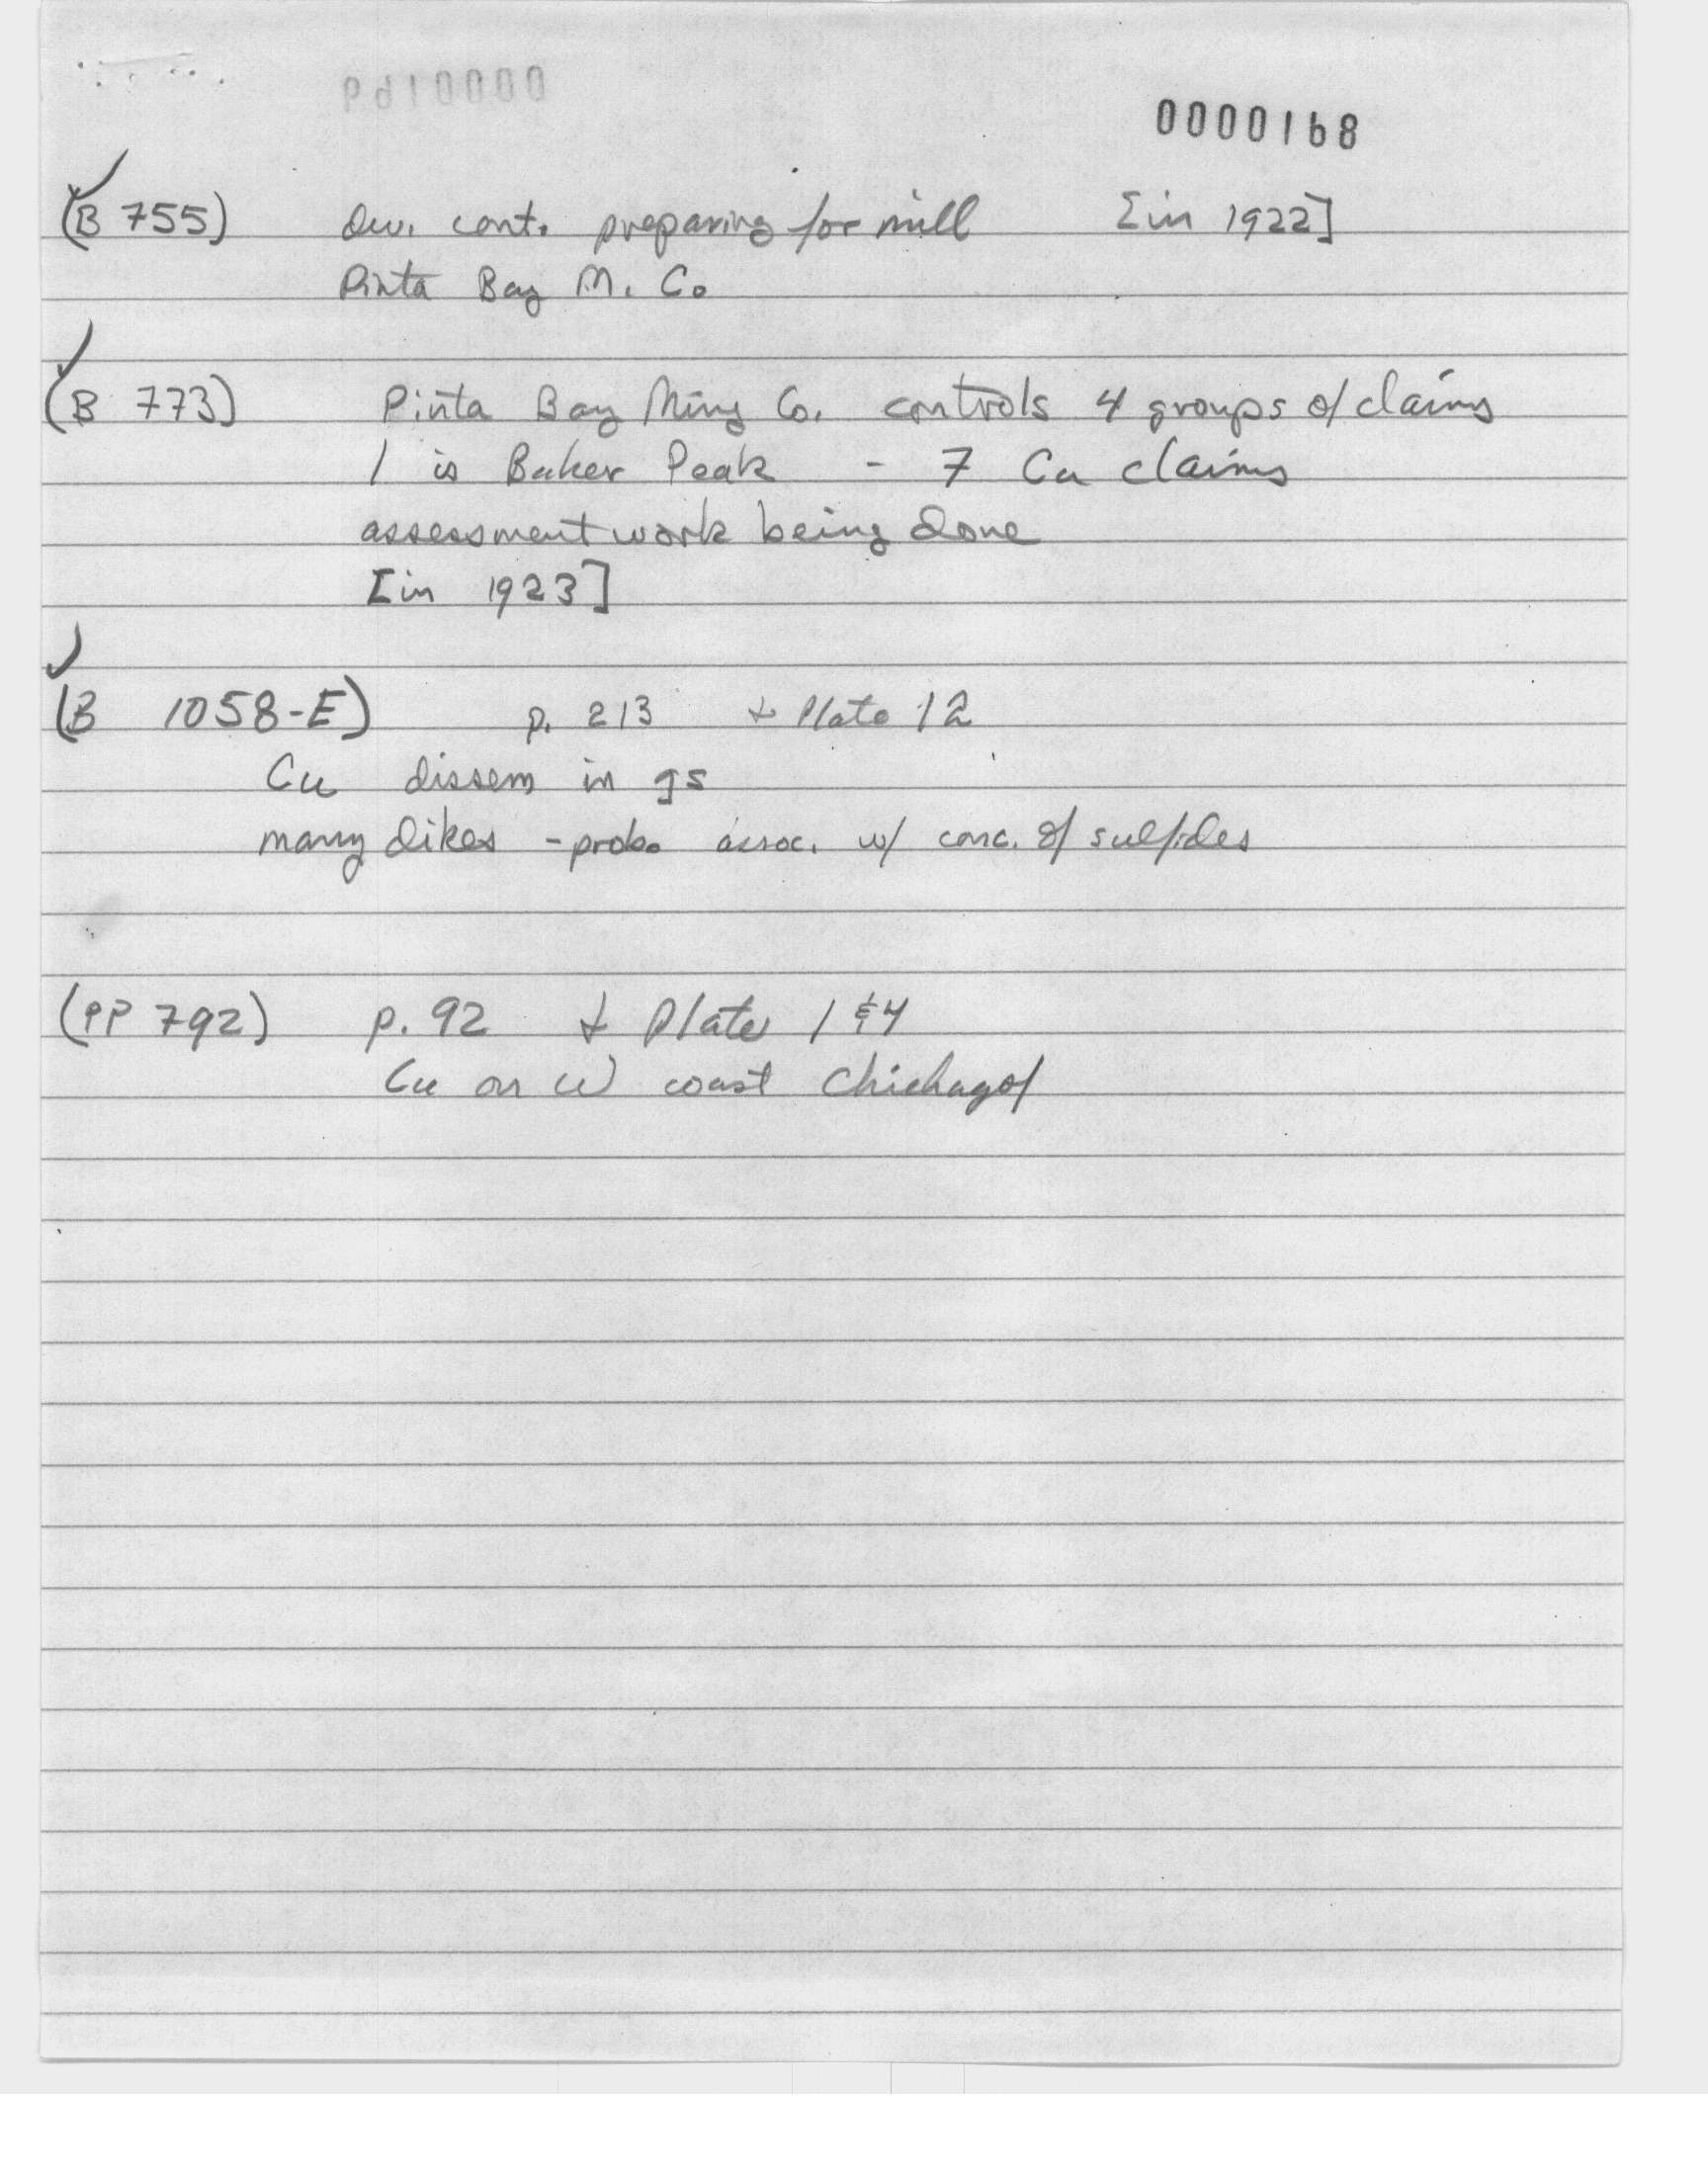 0000168
(B 755) Dev. cont. preparing for mill [in 1922]
Pinta Bay M. Co
(B 773) Pinta Bay Ming Co. controls 4 groups of claims
1 is Baker Peak - 7 Cu claims
assessment work being done
[in 1923]
(B 1058-E) p. 213 & Plate 12
Cu dissem in gs
many dikes - prob. assoc. w/ conc. of sulfides
(PP 792) p. 92 & Plate 1 & 4
Cu on W coast Chichagof